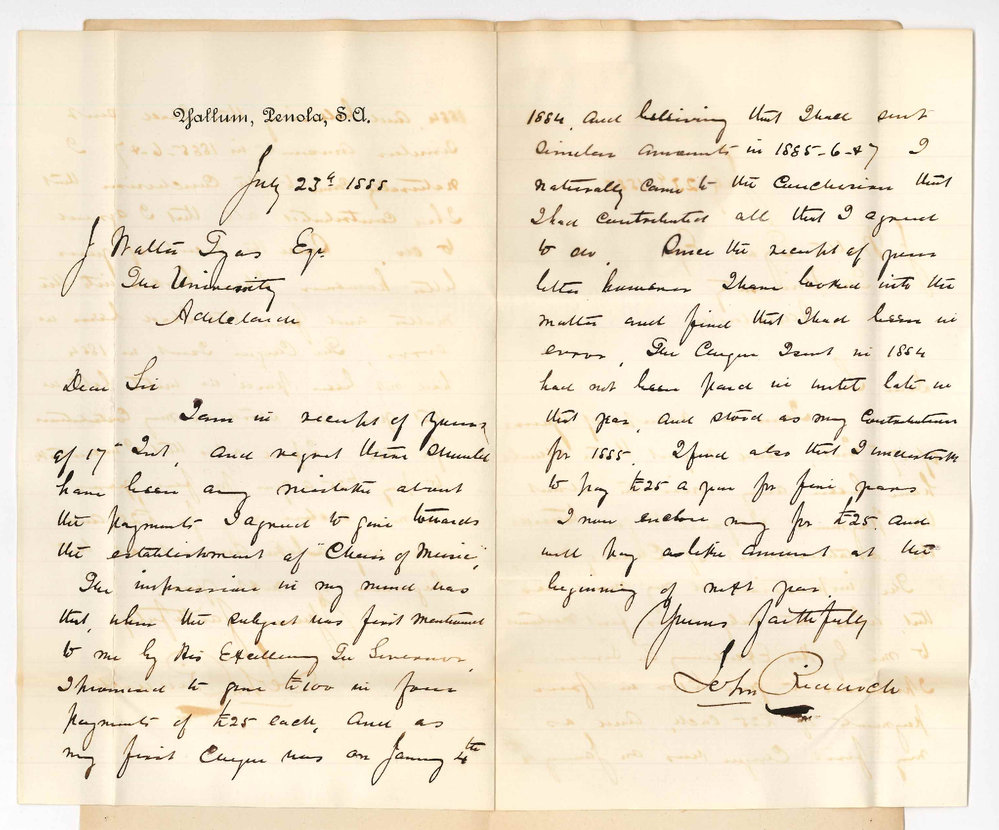 Yallum, Penola, S.A.
July 23d 1888
J Walter Tyas Esqr.
The University
Adelaide
Dear Sir
I am in receipt of yours
of 17th Inst, and regret there should
have been any mistake about
the payments I agreed to give towards
the establishment of "Chair of Music",
The impression in my mind was
that, when the subject was first mentioned
to me by His Excellency The Governor,
I promised to give £100 in four
payments of £25 each, and as
my first Cheque was on January 4th
1884, and believing that I had sent
similar amounts in 1885-6-&7 I
naturally came to the conclusion that
I had contributed all that I agreed
to do. Since the receipt of your
letter however I have looked into the
matter and find that I had been in
error, The Cheque I sent in 1884
had not been paid in until late in
that year, and stood as my contribution
for 1885, I find also that I undertook
to pay £25 a year for five years
I now enclose my for £25. and
will pay a like amount at the
beginning of next year.
Yours faithfully
John Riddoch